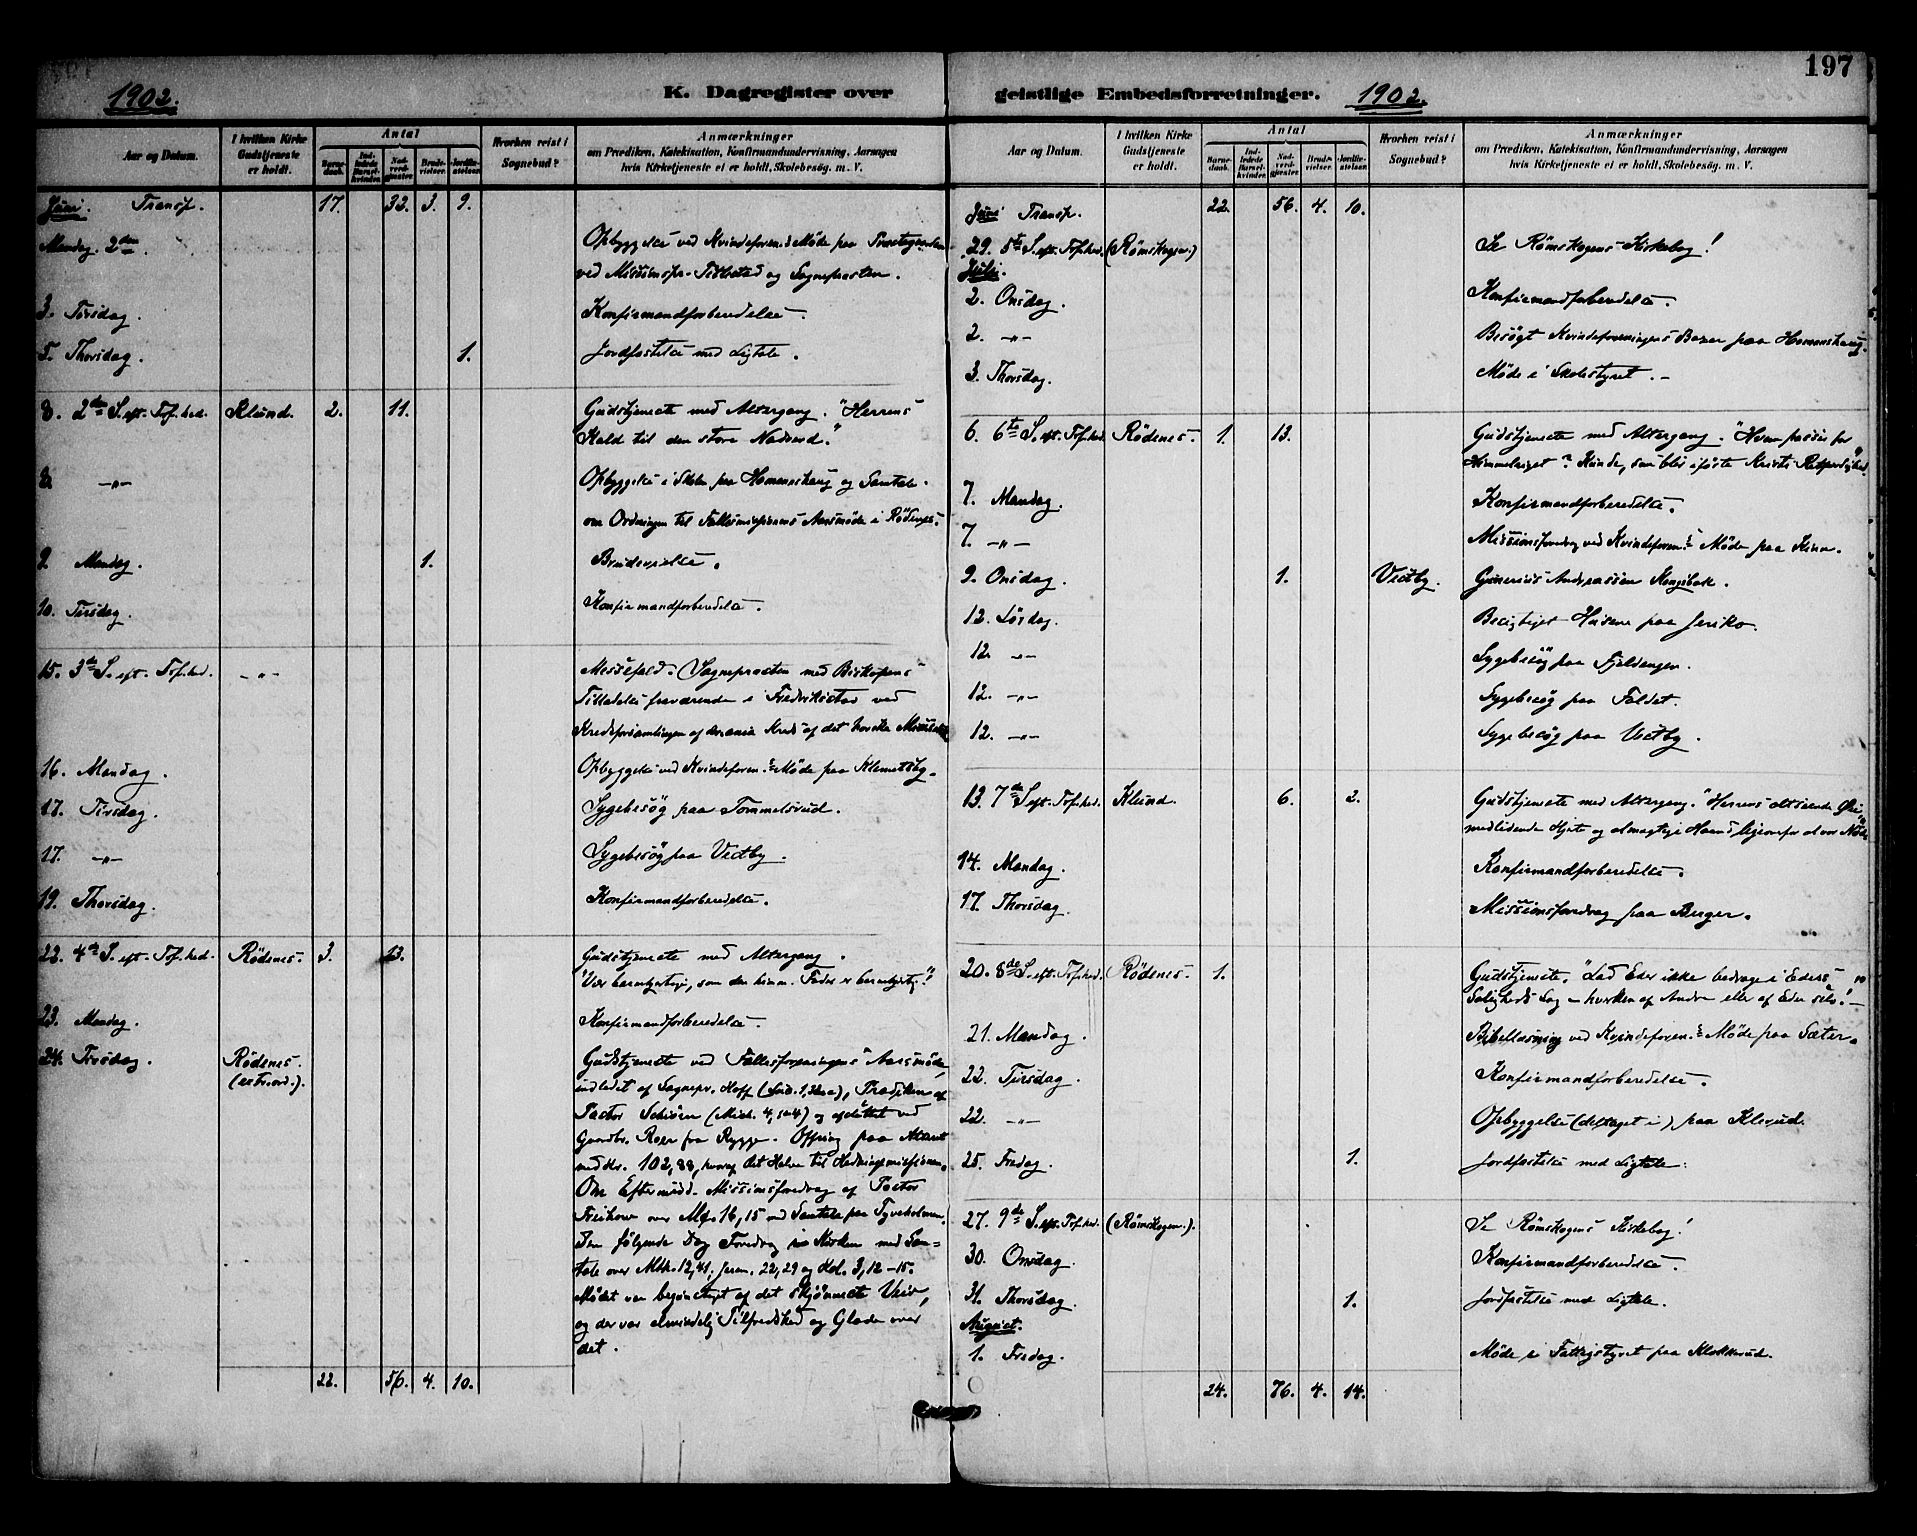 197
1902.
K. Dagregister over
Aar og Datum.
I hvilken Kirke Gudstjeneste er holdt.
Antal
Barne-daab.
Ind-ledede Barsel-kvinder.
Nad-verd-gjester.
Brude-vielser.
Jordfæ-stelser.
Hvorhen reist i Sognebud?
Anmærkninger
om Prædiken, Katekisation, Konfirmandundervisning, Aarsagen
hvis Kirketjeneste ei er holdt, Skolebesøg. m. V.
Juni. Transp. 17. 32. 3. 9.
Mandag 2den Opbyggelse ved Kvindeforen.s Møde paa
ved Missionspr. og Sognepræsten.
3. Tirsdag. Konfirmandforberedelse.
5. Thorsdag. 1. Jordfæstelse med Ligtale.
8. 2den S. eft. Tref.hed. Klund. 2. 11. Gudstjeneste med Altergang. "Herrens
Kald til den store Nadverd."
8. -"- Opbyggelse i Skolen paa Homenshaug og Samtale
om Ordningen til Fællesmissionens Aarsmøde i Rödenes.
9. Mandag. 1. Brudevielse.
10. Tirsdag. Konfirmandforberedelse.
15. 3die S. eft. Tref.hed. -"- Messefald. (Sognepræsten med Biskopens
Tilladelse fraværende i Fredrikstad ved
Kredsforsamlingen af Kreds af det norske
16. Mandag. Opbyggelse ved Kvindeforen.s Møde paa Klemetsby.
17. Tirsdag. Sygebesög paa Tommelsrud.
17. -"- Sygebesög paa Vestby.
19. Thorsdag. Konfirmandforberedelse.
22. 4de S. eft. Tref.hed. Rödenes. 3. 13. Gudstjeneste med Altergang.
"Vær barmhjertige, som den himm. Fader er barmhjertig."
23. Mandag. Konfirmandforberedelse.
24. Tirsdag. Rödenes. Gudstjeneste ved Fællesforeningens Aarsmöde,
(extraord.). indledet af Sognepr. Hoff Prædiken af
Pastor Schiörn (Mich. 4, 1-4) og afsluttet ved
Gaardbr. Roer fra Rygge. Offring paa Alteret
med Kr. 102,88, hvoraf det Halve til Hedningemissionen.
Om Eftermidd. Missionsforedrag af Pastor
over Mc. 16, 15 med Samtale paa Tyveholmen.
Den følgende Dag Foredrag i Kirken med Sam=
tale over Mtth. 12,41, Jerem. 22,29 og Kol. 3, 12-15.
Mödet var begunstiget af det skjönneste Veir,
og der var almindelig Tilfredshed og Glæde over
det.
22. 56. 4. 10.
geistlige Embedsforretninger.
1902.
Aar og Datum.
I hvilken Kirke Gudstjeneste er holdt.
Antal
Barne-daab.
Ind-ledede Barsel-kvinder.
Nad-verd-gjester.
Brud-vielser.
Jordfæ-stelser.
Hvorhen reist i Sognebud?
Anmærkninger
om Prædiken, Katekisation, Konfirmandundervisning, Aarsagen
hvis Kirketjeneste ei er holdt, Skolebesøg. m. V.
Juni Transp. 22. 56. 4. 10.
29. 5te S. eft. Tref.hed. (Römskogen.) Se Römskogens Kirkebog!
Juli.
2. Onsdag. Konfirmandforberedelse.
2. -"- Besögt Kvindeforeningens Bazar paa Homenshaug.
3. Thorsdag. Möde i Skolestyret. -
6. 6te S. eft. Tref.hed. Rödenes. 1. 13. Gudstjeneste med Altergang. "Hvem passer for
Himmeriget? Kun de, som blir iförte Kristi Retfærdighed."
7. Mandag. Konfirmandforberedelse.
7. -"- Missionsforedrag ved Kvindeforen.s Möde paa
9. Onsdag. 1. Vestby. Gunerius Andreassen
12. Lördag. Besigtiget Husene paa Jeriko.
12. -"- Sygebesög paa Fjeldengen.
12. -"- Sygebesög paa Faldet.
12. -"- Sygebesög paa Vestby.
13. 7de S. eft. Tref.hed. Klund. 6. 2. Gudstjeneste med Altergang. "Herrens altseende Öie,
medlidende Hjerte og almægtige Haand ligeoverfor al vor Nöd."
14. Mandag. Konfirmandforberedelse.
17. Thorsdag. Missionsforedrag paa Berger.
20. 8de S. eft. Tref.hed. Rödenes. 1. Gudstjeneste. "Lad Eder ikke bedrage i Eders
Saligheds Sag - hverken af Andre eller af Eder selv!" -
21. Mandag. Bibellæsning ved Kvindeforen.s Möde paa Sæter.
22. Tirsdag. Konfirmandforberedelse.
22. -"- Opbyggelse (deltaget i) paa Klevud.
25. Fredag. 1. Jordfæstelse med Ligtale.
27. 9de S. eft. Tref.hed. (Römskogen.). Se Römskogens Kirkebog!
30. Onsdag. Konfirmandforberedelse.
31. Thorsdag. 1. Jordfæstelse med Ligtale.
August.
1. Fredag. Möde i Fattigstyret paa Klokkerud.
24. 76. 4. 14.